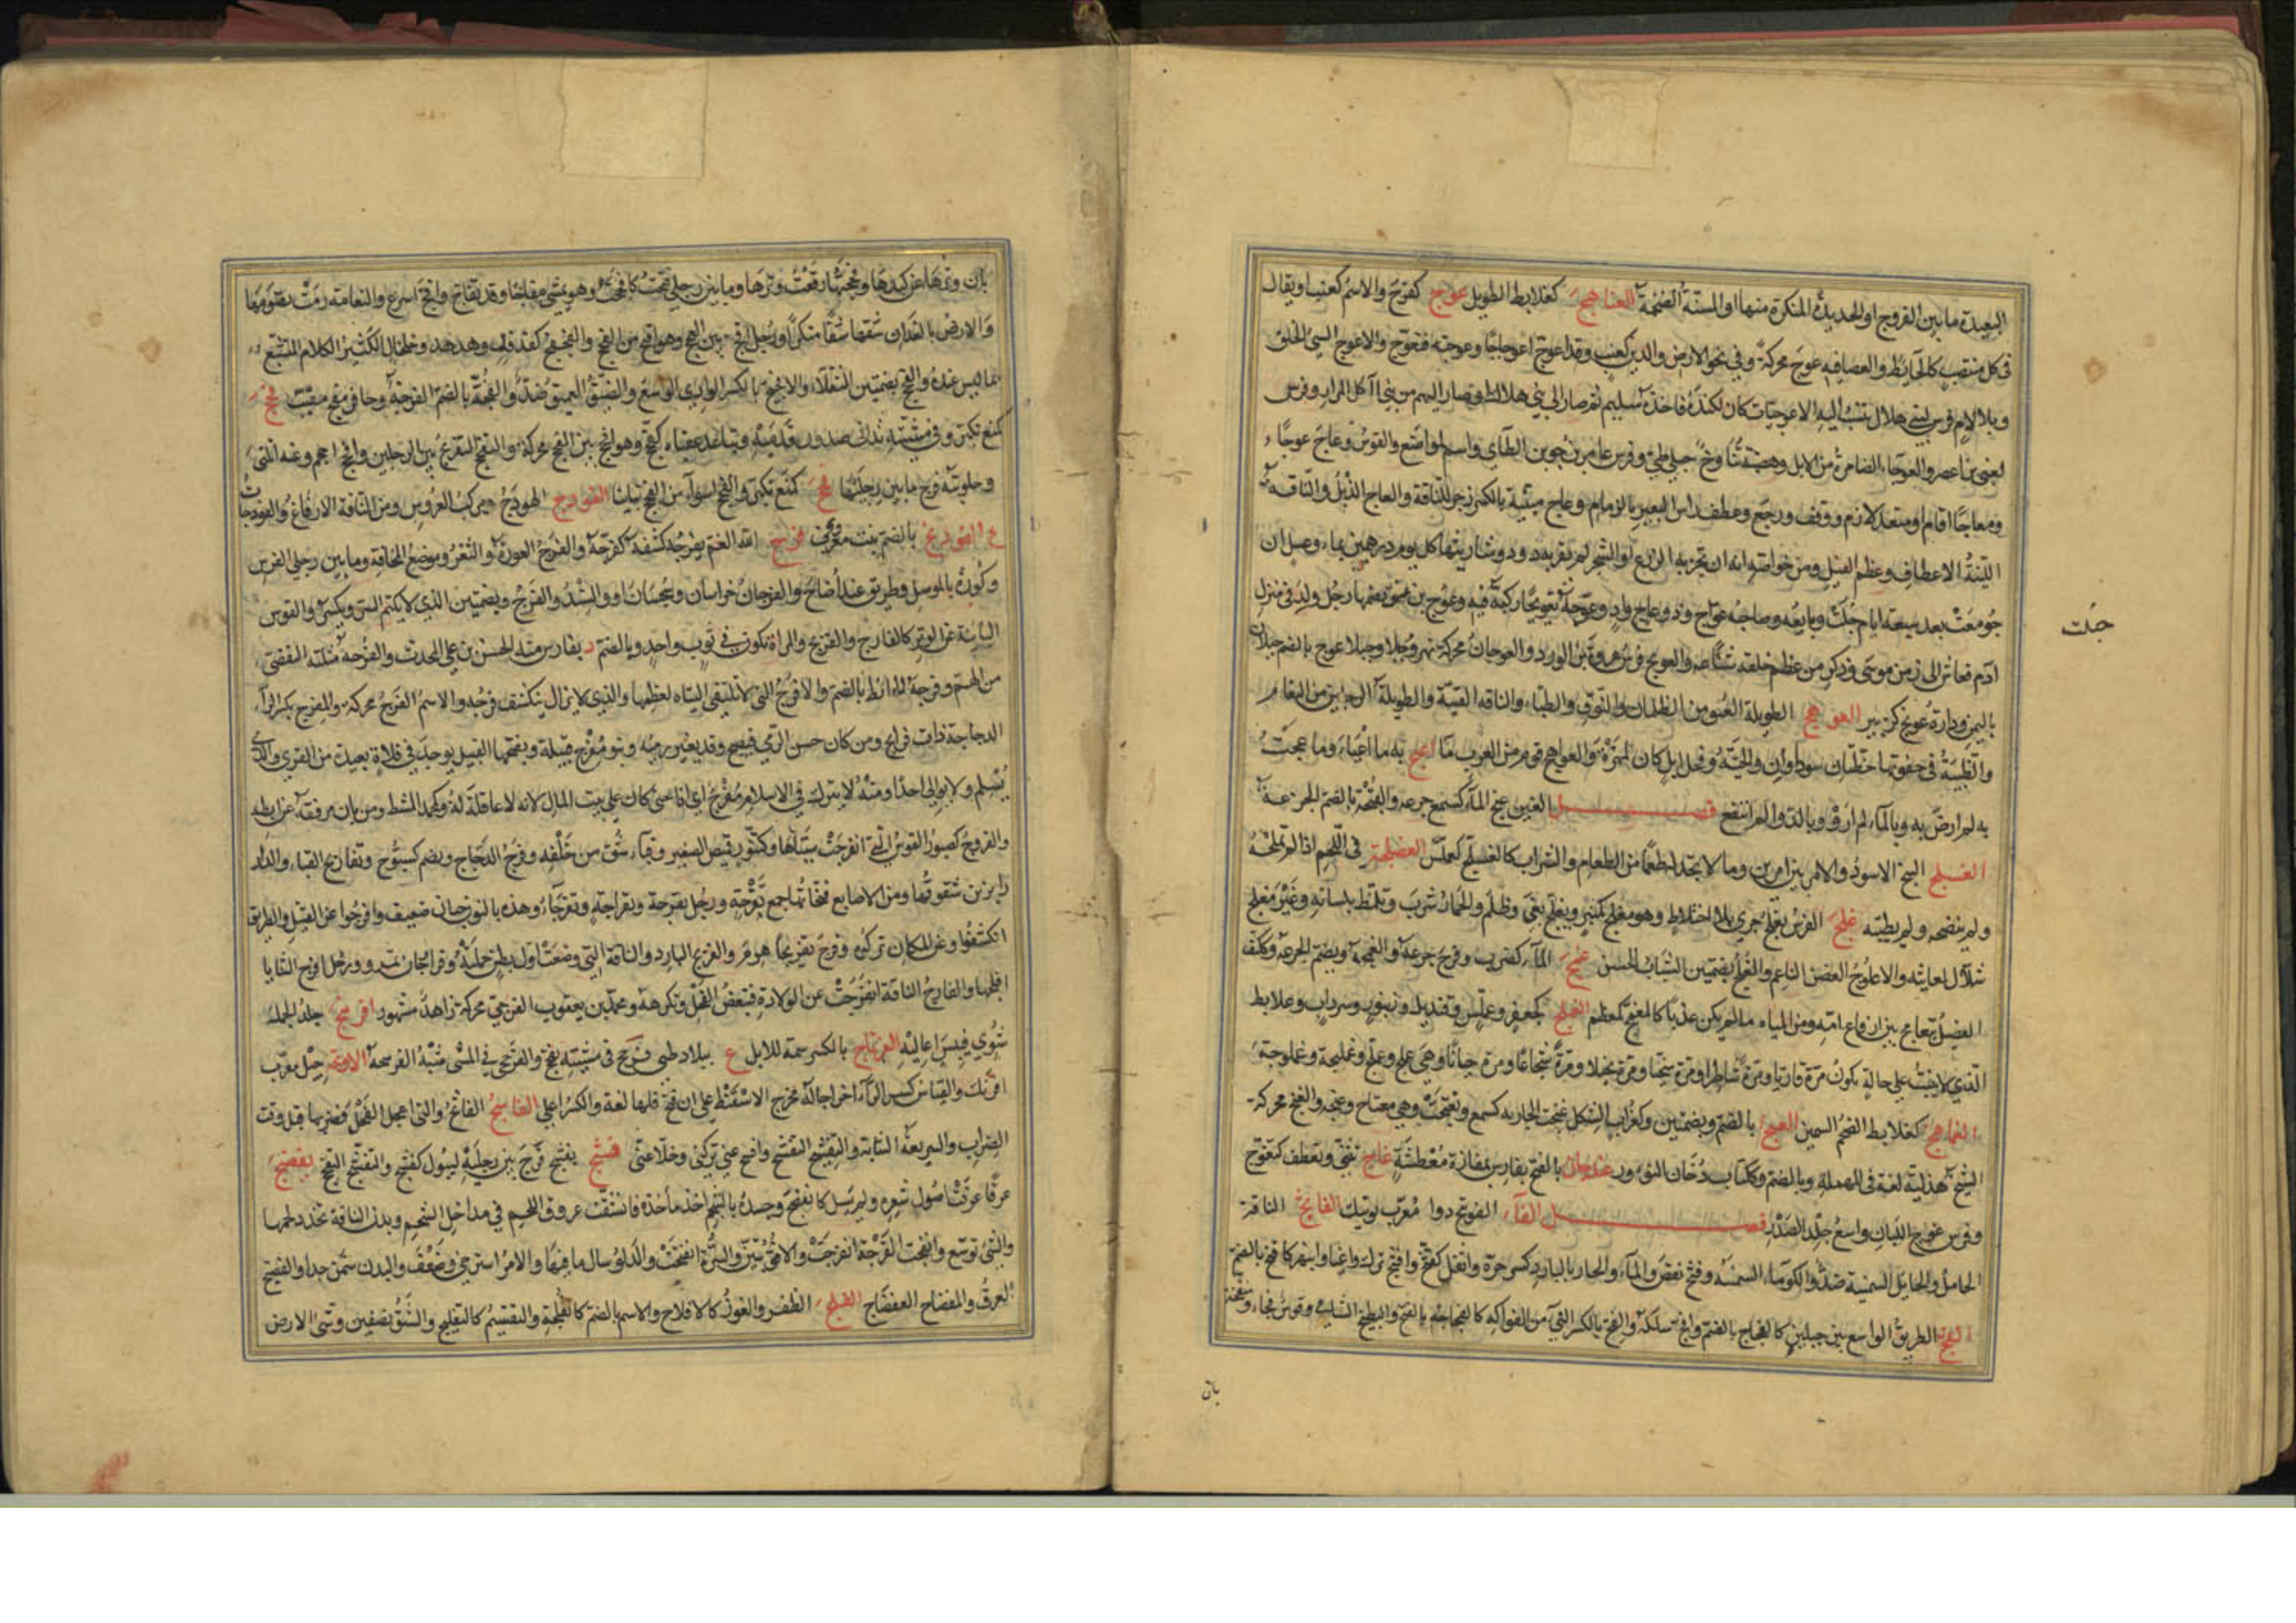 البعيدة ما بين الفروج او الحديدة المنكرة منها او المسنة الضخمة العناهج كعلابط الطويل عوج كفرح والاسم كعنب او يقال
فى كل منتصب كالحائط والعصا فيه عوج محركة وفي نحو الارض والدين كعنب وقد اعوج اعوجاجا وعوجته فتعوج والاعوج السيئ الخلق
وبلا لام فرس لبني هلال تنسب اليه الاعوجيات كان لكندة فاخذته سليم ثم صار الى بني هلال او صار اليهم من بني آكل المرار وفرس
لغني بن اعصر والعوجاء الضامرة من الابل وهضبة تناوح جبلي طيئ وفرس عامر بن جوين الطآي واسم لمواضع والقوس وعاج عوجا
ومعاجا اقام لازم ومتعد ووقف ورجع وعطف راس البعير بالزمام وعاج مبنية بالكسر زجر للناقة والعاج الذبل والناقة
اللينة الاعطاف وعظم الفيل ومن خواصه انه ان بخر به الزرع او الشجر لم يقربه دود وشاربتها كل يوم درهمين بماء وعسل ان
جومعت بعد سبعة ايام حبلت وبايعه وصاحبه عواج وذو عاج واد وعوجه تعويجا ركبه فيه وعوج بن عوق بضمهما رجل ولد في منزل
حبلت
آدم فعاش الى زمن موسى وذكر من عظم خلقه شناعه والعويج فرس عروة بن الورد والعوجان محركة نهر وجبلا عوج بالضم جبلان
باليمن ودارة عويج كزبير العوهج الطويلة العنق من الظلمان والنوق والظباء والناقة الفتية والطويلة الرجلين من النعام
والظبية في حقويها خطتان سوداوان والحية وفحل ابل كان لمهرة والعواهج قوم من العرب ما اعيج به ما اعباء وما عجت
به لم ارض به وبالماء لم ارو وبالدواء لم انتفع فصل الغين غج الماء كسمع جرعه والغجة بالضم الجرعة
الغسلج البنج الاسود والامر بين امرين وما لا تجد له طعما من الطعام والشراب كالغسلج كعملس الغضلجة فى اللحم اذا لم تملحه
ولم ينضجه ولم يطيبه غلج الفرس يغلج جرى بلا اختلاط وهو مغلج كمنبر ويغلج بغى وظلم والحمار شرب وتلمظ بلسانه وعير مغلج
شلال لعانته والاغلوج الغصن الناعم والغلج بضمتين الشباب الحسن غمج الماء كضرب وفرح جرعه والغمجة ويضم الجرعة وككتف
الفصيل يتغامج بين ارفاغ امه ومن المياه ما لم يكن عذبا كالمغمج كمعظم الغملج كجعفر وعملس وقنديل وزنبور وسرداب وعلابط
الذي لا يثبت على حالة يكون مرة قاريا ومرة شاطرا ومرة سخيا ومرة بخيلا ومرة شجاعا ومرة جبانا وهي غملج وغملج وغمليجة وغملوجة
الغماهج كعلابط الضخم السمين الغنج بالضم وبضمتين وكغراب الشكل غنجت الجارية كسمع وتغنجت وهي مغناج وغنجة والغنج محركة
الشيخ هذلية لغة في المهملة وبالضم وككتاب دخان النؤور غندجان بالفتح بفارس بمفازة معطشة غاج تثنى وتعطف كتغوج
وفرس غوج اللبان واسع جلد الصدر فصل الفاء الفوتنج دوا معرب بوتنك الفاثج الناقة
الحامل والحائل السمينة ضد والكوماء السمينة وفثج نقص والماء الحار بالبارد كسر حره واثقل كفثج وافثج ترك واعيا وانبهر كافثج بالضم
الفج الطريق الواسع بين جبلين كالفجاج بالضم وافج سلكه والفج بالكسر النيّ من الفواكه كالفجاجة بالفتح والبطيخ الشامي وقوس فجاء ومنفجة
بان
بان وترها عن كبدها وفججتها رفعت وترها وما بين رجلي فتحت كافججت وهو يمشي مفاجا وقد تفاج وافج اسرع والنعامة رمت بصومها
والارض بالفدان شقها شقا منكرا ورجل افج بين الفجج وهو اقبح من الفحج والفجفج كفدفد وهدهد وخلخال الكثير الكلام المتشبع
بما ليس عنده والفجج بضمتين الثقلاء والافجيج بالكسر الوادي الواسع والضيق العميق ضد والفجة بالضم الفرجة وحافر مفج مقبب فحج
كمنع تكبر وفي مشيته تدانى صدور قدميه وتباعد عقباه كفحج وهو افحج بين الفحج محركة والتفحج التفريج بين الرجلين وافحج احجم وعنه انثنى
وحلوبته فرج ما بين رجليها فخج كمنع تكبر والفخج اسوأ من الفحج تباينا الفودج الهودج ومركب العروس ومن الناقة الارفاغ والفودجات
ع الفوذنج بالضم نبت معرب فرج الله الغم يفرجه كشفه كفرجه والفرج العورة والثغر وموضع المخافة وما بين رجلي الفرس
وكورة بالموصل وطريق عند اضاخ والفرجان خراسان وسجستان او والسند والفرج وبضمتين الذي لا يكتم السر ويكسر والقوس
البائنة عن الوتر كالفارج والفريج والمراة تكون في ثوب واحد وبالضم د بفارس منه الحسن بن علي المحدث والفرجة مثلثة التفصي
من الهم وفرجة الحائط بالضم والافرج الذي لا تلتقي اليتاه لعظمهما والذي لا يزال ينكشف فرجه والاسم الفرج محركة والمفرج بكسر الراء
الدجاجة ذات فراريج ومن كان حسن الرمي فيصبح وقد يغير رميه وبنو مفرج قبيلة وبفتحها القتيل يوجد في فلاة بعيدة من القرى والذي
يسلم ولا يوالي احدا ومنه لا يترك في الاسلام مفرج اي اذا جنى كان على بيت المال لانه لا عاقلة له وكمحمد المشط ومن بان مرفقه عن ابطه
والفروج كصبور القوس التي انفرجت سيتاها وكتنور قميص الصغير وقباء شق من خلفه وفرخ الدجاج ويضم كسبوح وتفاريج القباء والدار
زابزين شقوقها ومن الاصابع فتحاتها جمع تفرجة ورجل تفرجة وتفراجة وتفرجاء وهذه بالنون جبان ضعيف وافرجوا عن القتيل والطريق
انكشفوا وعن المكان تركوه وفرج تفريجا هرم والفريج البارد والناقة التي وضعت اول بطن حملته وفراوجان بمرو ورجل افرج الثنايا
افلجها والفارج الناقة انفرجت عن الولادة فتبغض الفحل وتكرهه ومحمد بن يعقوب الفرجي محركة زاهد مشهور افرنبج جلد الحمل
شوي فيبس اعاليه الفرتاج بالكسر سمة للابل ع ببلاد طيئ فرحج في مشيته تفحج والفرحجى في المشي شبه الفرشحة الافرنجة جيل معرب
افرنك والقياس كسر الراء اخراجا له مخرج الاسفنط على ان فتح فائها لغة والكسر اعلى الفاسج الفاثج والتي اعجلها الفحل فضربها قبل وقت
الضراب والسريعة الشابة والتفسيج التفشيج وافسج عني تركني وخلا عني فشج يفشج فرج بين رجليه ليبول كفشج والتفشج التفحج تفضج
عرقا عرقت اصول شعره ولم يسل كانفضج وجسده بالشحم اخذ مأخذه فانشقت عروق اللحم في مداخل الشحم وبدن الناقة تخدد لحمها
والشيئ توسع وانفضجت القرحة انفرجت والافق تبين والسرة انفتحت والدلو سال ما فيها والامر استرخى وضعف والبدن سمن جدا والفضيج
العرق والمفضاج العفضاج الفلج الظفر والفوز كالافلاج والاسم بالضم كالفلجة والتقسيم كالتفليج والشق نصفين وشق الارض